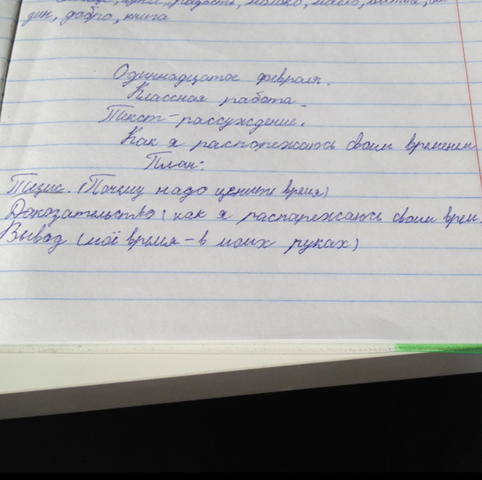 радость, молоко, масло,
дин, добро, книга
Одиннадцатое февраля.
Классная работа.
Текст-рассуждение.
Как я распоряжаюсь своим временем
План:
Тезис. (Почему надо ценить время)
Доказательство (как я распоряжаюсь своим врем.
Вывод (моё время - в моих руках)